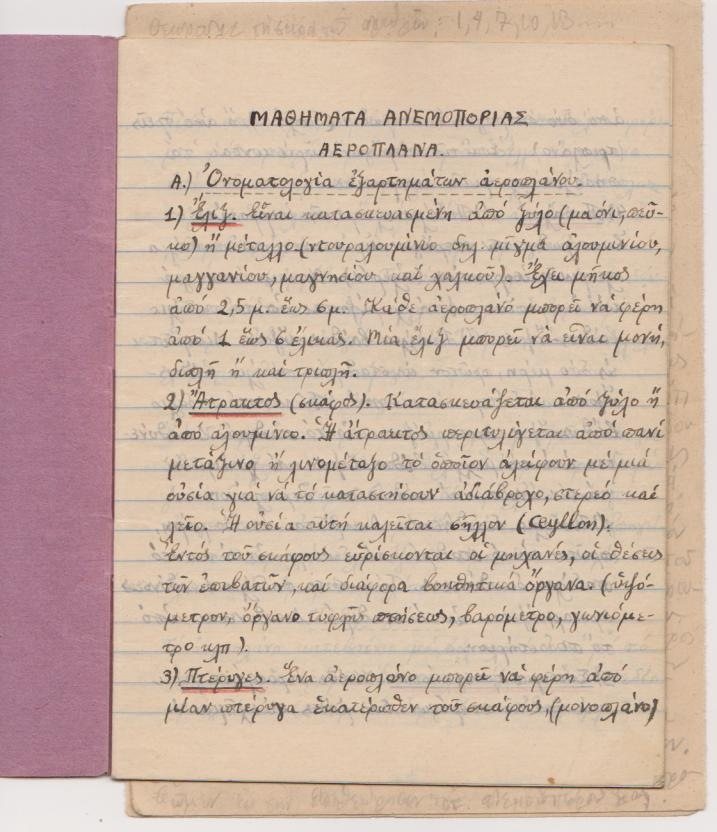 Θεωρίας
1, 4, 7, 10, 13
ΜΑΘΗΜΑΤΑ ΑΝΕΜΟΠΟΡΙΑΣ
ΑΕΡΟΠΛΑΝΑ.
Α.) Ὀνοματολογία ἐξαρτημάτων ἀεροπλάνου.
1) Ἕλιξ. Εἶναι κατασκευασμένη ἀπό ξύλο (μαόνι, πεῦ-
κο) ἤ μέταλλο (ντουραλουμίνιο δηλ. μῖγμα ἀλουμινίου,
μαγγανίου, μαγνησίου καί χαλκοῦ). Ἔχει μῆκος
ἀπό 2,5 μ. ἕως 6 μ. Κάθε ἀεροπλάνο μπορεῖ νά φέρη
ἀπό 1 ἕως 6 ἕλικας. Μία ἕλιξ μπορεῖ νά εἶναι μονή,
διπλῆ ἤ καί τριπλῆ.
2) Ἄτρακτος (σκάφος). Κατασκευάζεται ἀπό ξύλο ἤ
ἀπό ἀλουμίνιο. Ἡ ἄτρακτος περιτυλίγεται ἀπό πανί
μετάξινο ἤ λινομέταξο τό ὁποῖον ἀλείφουν μέ μιά
οὐσία γιά νά τό καταστήσουν ἀδιάβροχο, στερεό καί
λεῖο. Ἡ οὐσία αὐτή καλεῖται σῆλλον (Ceyllon).
Ἐντός τοῦ σκάφους εὑρίσκονται οἱ μηχανές, οἱ θέσεις
τῶν ἐπιβατῶν, καί διάφορα βοηθητικά ὄργανα (ὑψό-
μετρον, ὄργανο τυφλῆς πτήσεως, βαρόμετρο, γωνιόμε-
τρο κλπ).
3) Πτέρυγες. Ἕνα ἀεροπλάνο μπορεῖ νά φέρη ἀπό
μίαν πτέρυγα ἑκατέρωθεν τοῦ σκάφους, (μονοπλάνο)